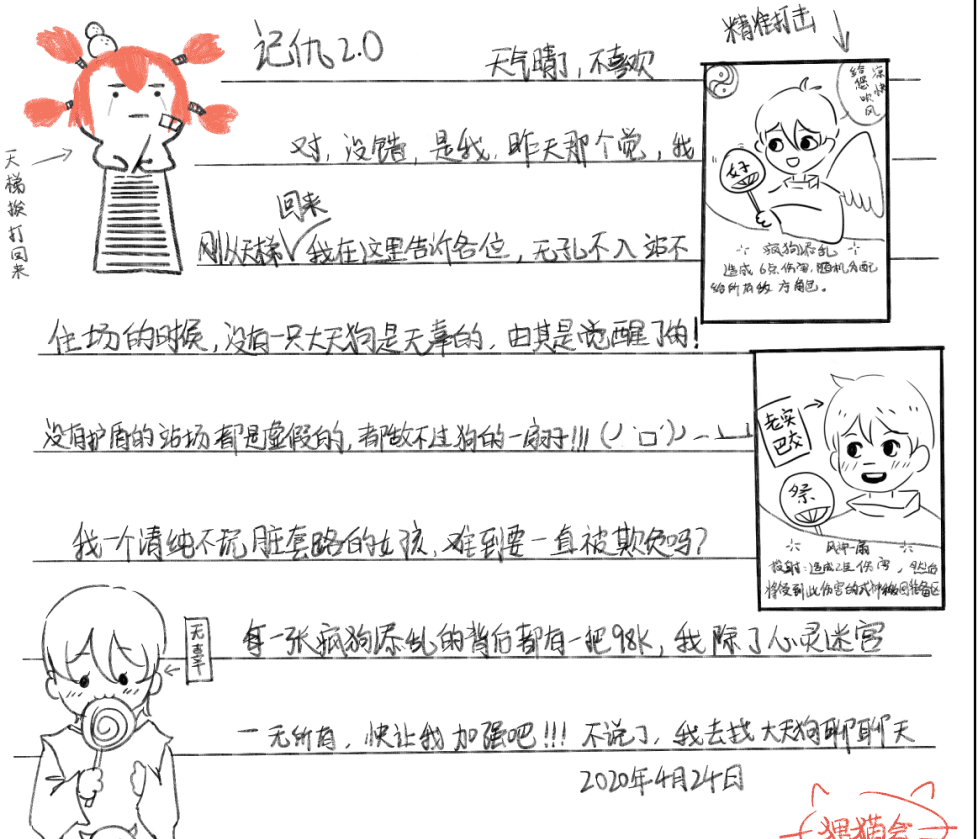 记仇2.0
精准打击
天气晴了,不喜欢
给您吹风
凉快
好
对,没错,是我,昨天那个觉,我
天梯挨打回来
回来
刚从天梯我在这里告诉各位,无孔不入 站不
疯狗添乱
造成6点伤害,随机分配
给所有敌方角色。
住场的时候,没有一只大天狗是无辜的,由其是觉醒了的!
老实巴交
没有护盾的站场都是虚假的,都敌不过狗的一扇子!!!
祭
我一个清纯不玩脏套路的女孩,难到要一直被欺负吗?
投射:造成2点伤害,然后
将受到此伤害的式神移回准备区
无辜
每一张疯狗添乱的背后都有一把98K,我除了心灵迷宫
一无所有,快让我加强吧!!!不说了,我去找大天狗聊聊天
2020年4月24日
狸猫会